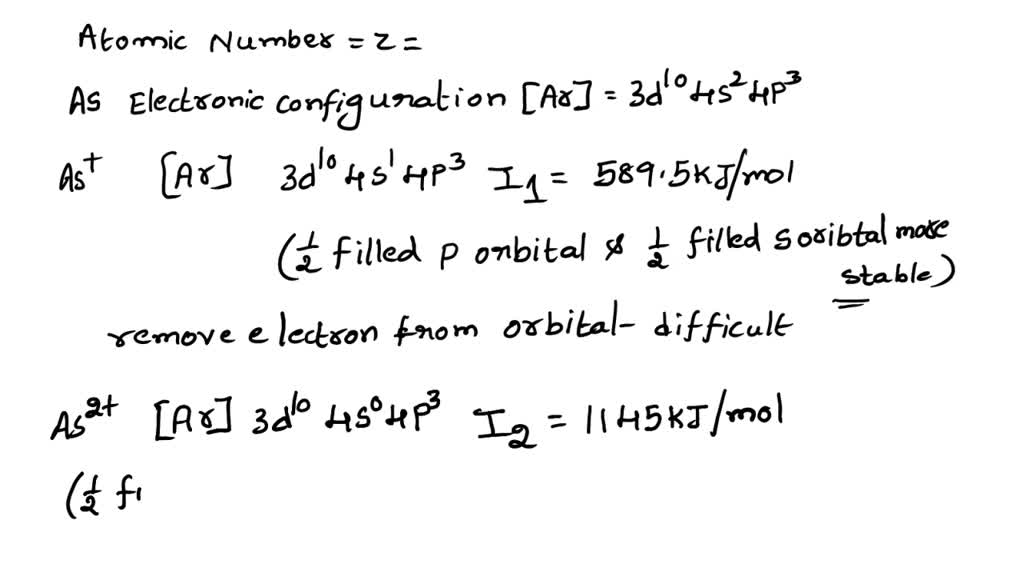 Atomic Number = Z =
As Electronic configuration [Ar] = 3d¹⁰ 4s² 4p³
As⁺ [Ar] 3d¹⁰ 4s¹ 4p³ I₁ = 589.5 kJ/mol
(½ filled p orbital & ½ filled s oribtal more
stable)
remove electron from orbital - difficult
As²⁺ [Ar] 3d¹⁰ 4s⁰ 4p³ I₂ = 1145 kJ/mol
(½ fi